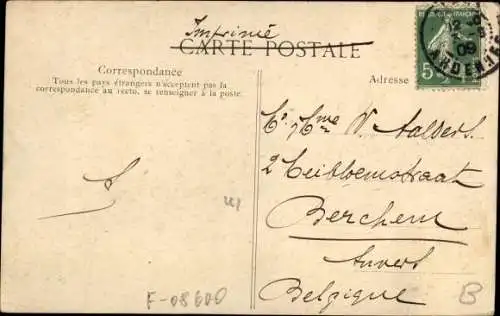 Imprimé
CARTE POSTALE
Correspondance
Tous les pays étrangers n'acceptent pas la
correspondance au recto, se renseigner à la poste.
Adresse
5
09
ARDE
Mme V. Aalders.
2 Meibloemstraat
Berchem
Anvers
Belgique
F-08600
B